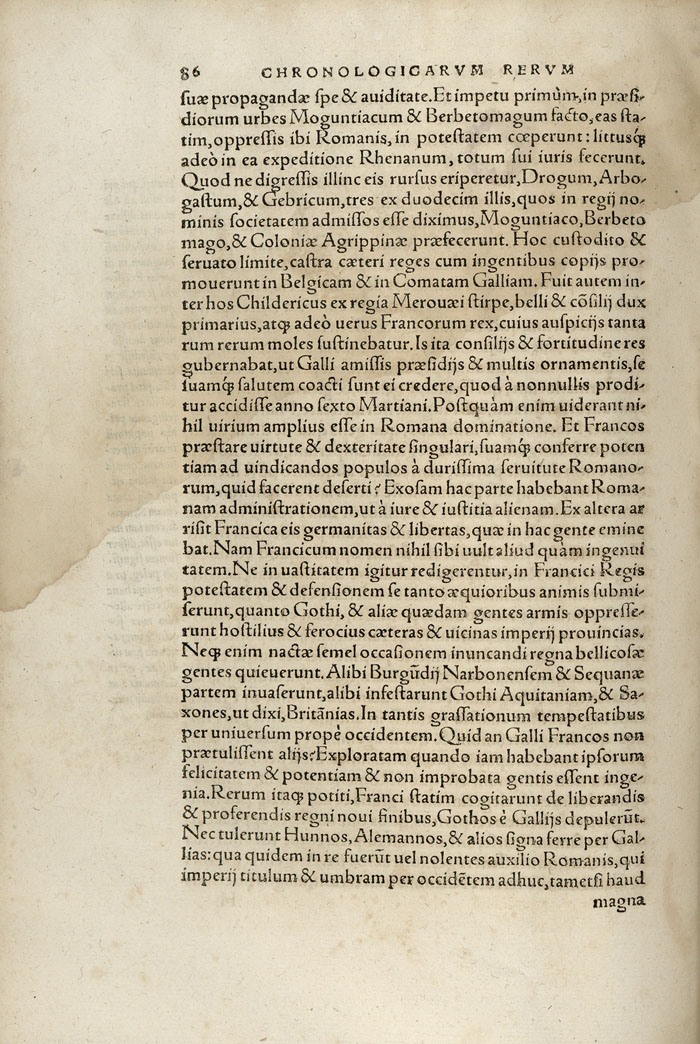 86 CHRONOLOGICARVM RERVM
ſuæ propagandæ ſpe & auiditate. Et impetu primùm, in præſi-
diorum urbes Moguntiacum & Berbetomagum facto, eas ſta-
tim, oppreſſis ibi Romanis, in poteſtatem cœperunt: littusq́ꝫ
adeò in ea expeditione Rhenanum, totum ſui iuris fecerunt.
Quod ne digreſſis illinc eis rurſus eriperetur, Drogum, Arbo-
gaſtum, & Gebricum, tres ex duodecim illis, quos in regij no-
minis ſocietatem admiſſos eſſe diximus, Moguntiaco, Berbeto
mago, & Coloniæ Agrippinæ præfecerunt. Hoc cuſtodito &
ſeruato limite, caſtra cæteri reges cum ingentibus copijs pro-
mouerunt in Belgicam & in Comatam Galliam. Fuit autem in-
ter hos Childericus ex regia Merouæi ſtirpe, belli & cõſilij dux
primarius, atqꝫ adeò uerus Francorum rex, cuius auſpicijs tanta
rum rerum moles ſuſtinebatur. Is ita conſilijs & fortitudine res
gubernabat, ut Galli amiſſis præſidijs & multis ornamentis, ſe
ſuamq́ꝫ ſalutem coacti ſunt ei credere, quod à nonnullis prodi-
tur accidiſſe anno ſexto Martiani. Poſtquàm enim uiderant ni-
hil uirium amplius eſſe in Romana dominatione. Et Francos
præſtare uirtute & dexteritate ſingulari, ſuamq́ꝫ conferre poten
tiam ad uindicandos populos à duriſſima ſeruitute Romano-
rum, quid facerent deſerti? Exoſam hac parte habebant Roma-
nam adminiſtrationem, ut à iure & iuſtitia alienam. Ex altera ar
riſit Francica eis germanitas & libertas, quæ in hac gente emine
bat. Nam Francicum nomen nihil ſibi uult aliud quàm ingenui
tatem. Ne in uaſtitatem igitur redigerentur, in Francici Regis
poteſtatem & defenſionem ſe tanto æquioribus animis ſubmi-
ſerunt, quanto Gothi, & aliæ quædam gentes armis oppreſſe-
runt hoſtilius & ferocius cæteras & uicinas imperij prouincias.
Neqꝫ enim nactæ ſemel occaſionem inuncandi regna bellicoſæ
gentes quieuerunt. Alibi Burgũdij Narbonenſem & Sequanæ
partem inuaſerunt, alibi infeſtarunt Gothi Aquitaniam, & Sa-
xones, ut dixi, Britãnias. In tantis graſſationum tempeſtatibus
per uniuerſum propè occidentem. Quid an Galli Francos non
prætuliſſent alijs? Exploratam quando iam habebant ipſorum
felicitatem & potentiam & non improbata gentis eſſent inge-
nia. Rerum itaqꝫ potiti, Franci ſtatim cogitarunt de liberandis
& proferendis regni noui finibus, Gothos è Gallijs depulerũt.
Nec tulerunt Hunnos, Alemannos, & alios ſigna ferre per Gal-
lias: qua quidem in re fuerũt uel nolentes auxilio Romanis, qui
imperij titulum & umbram per occidẽtem adhuc, tametſi haud
magna